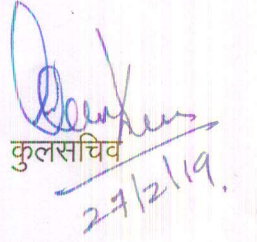 कुलसचिव
27/2/19.